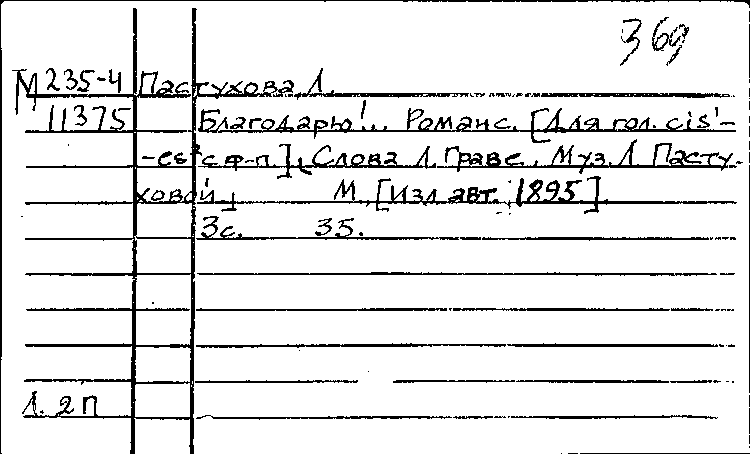 369
М 235-4 Пастухова, Л.
11375 Благодарю!.. Романс. [Для гол. cis'-
-es² с ф-п.], Слова Л. Граве. Муз. Л. Пасту-
ховой М., [Изд. авт. 1895].
3с. 35.
1. 2П